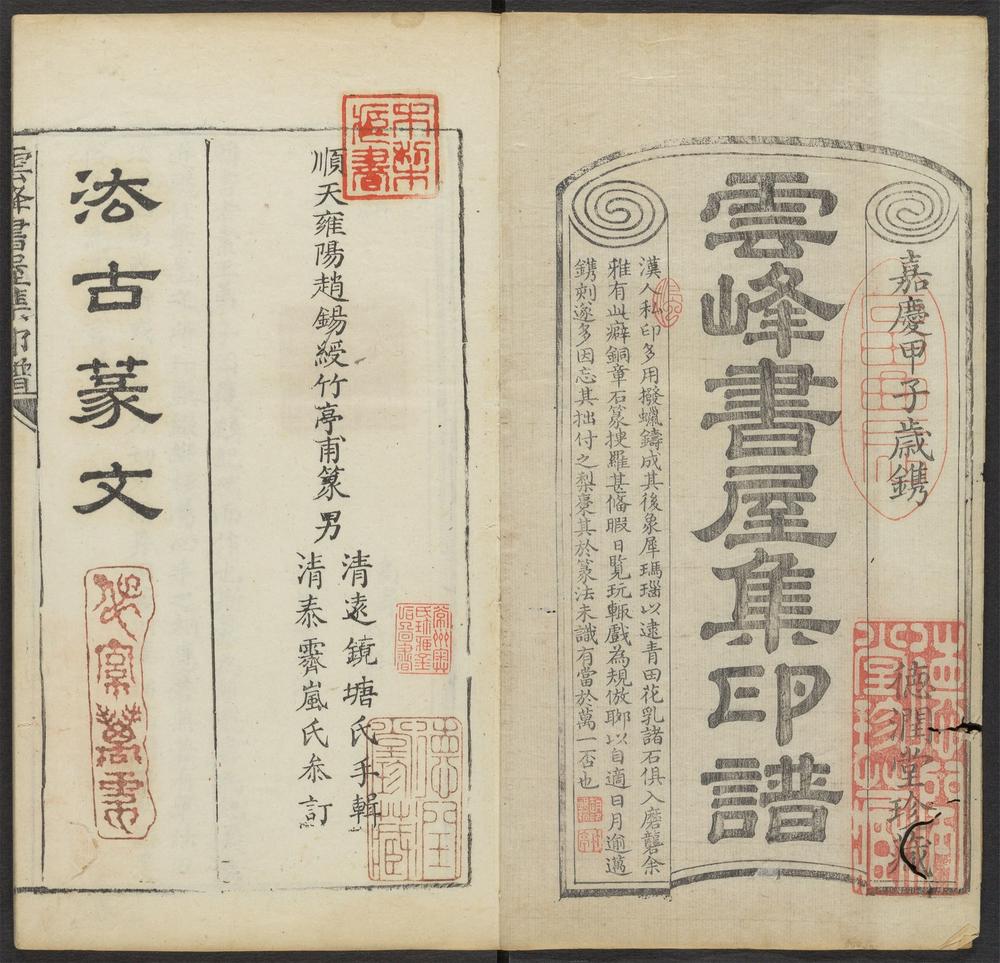 嘉慶甲子歲鐫
德潤堂珍藏
雲峰書屋集印譜
漢人私印多用撥蠟鑄成其後象犀瑪瑙以逮青田花乳諸石俱入磨礱余
雅有此癖銅章石篆搜羅甚備暇日覽玩輒戲為規倣聊以自適日月逾邁
鐫刻遂多因忘其拙付之梨棗其於篆法未識有當於萬一否也
順天雍陽趙錫綬竹亭甫篆男
清遠鏡塘氏手輯
清泰霽嵐氏叅訂
法古篆文
雲峰書屋集印譜